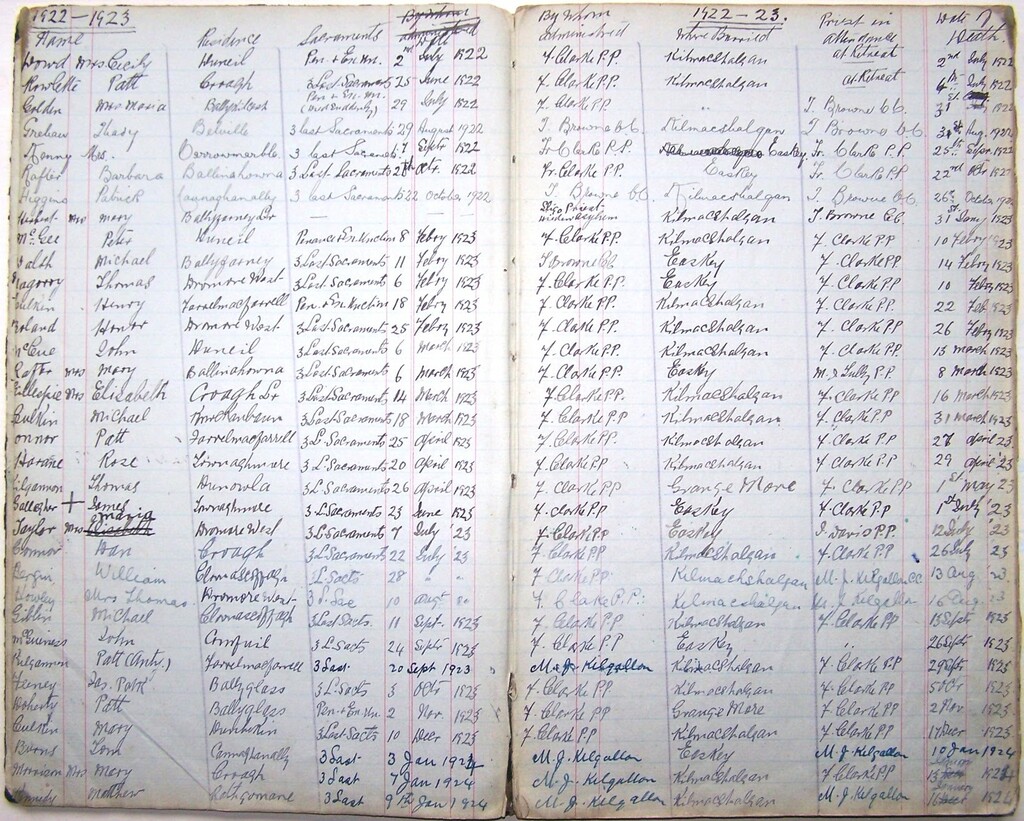 1922 - 1923 By Whom 1922 - 23. Priest in Date
Name Residence Sacraments Date Administered Where Buried attendance at Retreat Death
Mrs Cecily Duneil Pen. + En. Un. 2nd July 1922 F. Clarke P.P. Kilmacshalgan at Retreat 2nd July 1922
Rowlette Patt Croagh 3 Last Sacraments 25 June 1922 F. Clarke P.P. Kilmacshalgan at Retreat
Golden Mrs Maria Pen + Ex. Un. (Died Suddenly) 29 July 1922 F. Clarke P.P. " T. Browne C.C. 31st 1922
Thady Belville 3 last Sacraments 29 August 1922 T. Browne C.C. Kilmacshalgan T. Browne C.C. Aug. 1922
Kenny Mrs. 3 last Sacraments 7 Septr 1922 Fr. Clarke P.P. Easkey Fr. Clarke P.P. 25th Septr. 1922
Rafter Barbara Ballinahowna 3 Last Sacraments Octr. 1922 Fr. Clarke P.P. Easkey Fr. Clarke P.P. 22nd 1922
Higgins Patrick 3 last Sacraments 22 October 1922 T. Browne C.C. Kilmacshalgan T. Browne C.C. 26th October 1922
Mrs Mary — — Sligo Priest Asylum Kilmacshalgan T. Browne C.C. 31st 1923
McGee Peter Duneil Penance + En. Unction 8 Febry 1923 F. Clarke P.P. Kilmacshalgan F. Clarke P.P. 10 Febry 1923
Walsh Michael Ballygarney 3 Last Sacraments 11 Febry 1923 T. Browne C.C. Easkey F. Clarke P.P. 14 Febry 1923
Thomas Dromore West 3 Last Sacraments 6 Febry 1923 F. Clarke P.P. Easkey F. Clarke P.P. 10 Febry 1923
Henry Farrelmacfarrell Pen. + En. Unction 18 Febry 1923 F. Clarke P.P. Kilmacshalgan F. Clarke P.P. 22 Feb. 1923
Boland Honor Dromore West 3 Last Sacraments 25 Febry 1923 F. Clarke P.P. Kilmacshalgan F. Clarke P.P. 26 Febry 1923
McCue John Duneil 3 Last Sacraments 6 March 1923 F. Clarke P.P. Kilmacshalgan F. Clarke P.P. 13 March 1923
Mrs Mary Ballinahowna 3 Last Sacraments 6 March 1923 F. Clarke P.P. Easky 8 March 1923
Gillespie Mrs Elizabeth Croagh Lr 3 Last Sacraments 14 March 1923 F. Clarke P.P. Kilmacshalgan F. Clarke P.P. 16 March 1923
Culkin Michael 3 Last Sacraments 18 March 1923 F. Clarke P.P. Kilmacshalgan F. Clarke P.P. 31 March 1923
Connor Patt Farrelmacfarrell 3 L. Sacraments 25 April 1923 F. Clarke P.P. Kilmacshalgan F. Clarke P.P. 27 April 23
Rose 3 L. Sacraments 20 April 1923 F. Clarke P.P. Kilmacshalgan F. Clarke P.P. 29 April 23
Kilgannon Thomas Dunowla 3 L. Sacraments 26 April 1923 F. Clarke P.P. Grange More F. Clarke P.P. 1st May 23
Gallegher + James 3 L. Sacraments 23 June 1923 F. Clarke P.P. Easkey F. Clarke P.P. 1st July '23
Taylor Mrs Maria Dromore West 3 L. Sacraments 7 July '23 F. Clarke P.P. Easkey 12 July '23
Connor Croagh 3 L. Sacraments 22 July '23 F. Clarke P.P. Kilmacshalgan F. Clarke P.P. 26 July 23
William L. Sacts 28 " " F. Clarke P.P. Kilmachshalgan M. J. Kilgallon C.C. 13 Aug 23
Howley Mrs Thomas Dromore West 3 L. Sac 10 Augt F. Clarke P.P. Kilmacshalgan M. J. Kilgallon 16 Aug 23
Giblin Michael 3 Last Sacts. 11 Sept. 1923 F. Clarke P.P. Kilmacshalgan F. Clarke P.P. 15 Septr 1923
McGuiness John 3 L. Sacts 24 Septr 1923 F. Clarke P.P. Easkey " 26 Septr 1923
Kilgannon Patt (Anth.) Farrelmacfarrell 3 Last 20 Sept 1923 M. J. Kilgallon Kilmacshalgan F. Clarke P.P. 29 Septr 1923
Feeney Jas. Patk Ballyglass 3 L. Sacts 3 Octr 1923 F. Clarke P.P. Kilmacshalgan F. Clarke P.P. 5 Octr 1923
Doherty Patt Ballyglass Pen. + Ex. Un. 2 Nov. 1923 F. Clarke P.P. Grange More F. Clarke P.P. 2 Nov. 1923
Culkin Mary 3 Last Sacts 10 Decr 1923 F. Clarke P.P. Kilmacshalgan F. Clarke P.P. 17 Decr 1923
Burns Tom 3 Last 3 Jan 1924 M. J. Kilgallon Easkey M. J. Kilgallon 10 Jan 1924
Morrison Mrs Mary Croagh 3 Last 7 Jan 1924 M. J. Kilgallon Kilmacshalgan F. Clarke P.P. 13 1924
Matthew Rathgomane 3 Last 9th Jan 1924 M. J. Kilgallon Kilmacshalgan M. J. Kilgallon 16 1924